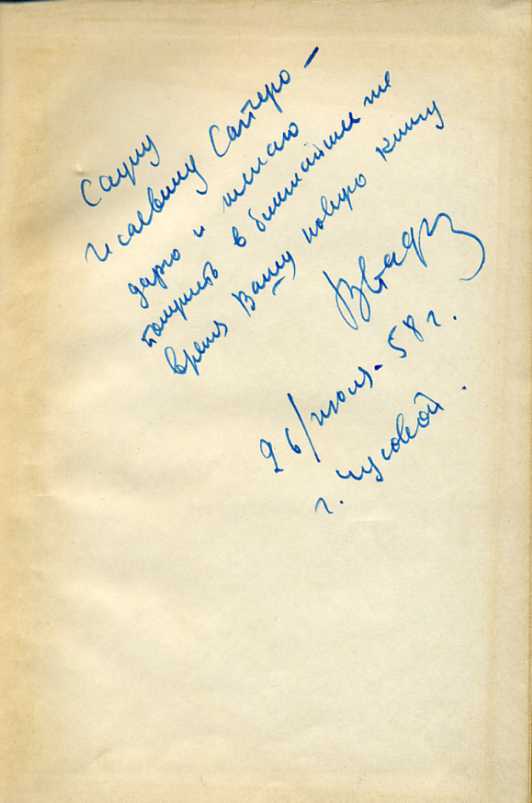 Саулу
Исаевичу Саттеро –
дарю и желаю
получить в ближайшем же
время Вашу новую книгу
26/июля - 58 г.
г. Чусовой.